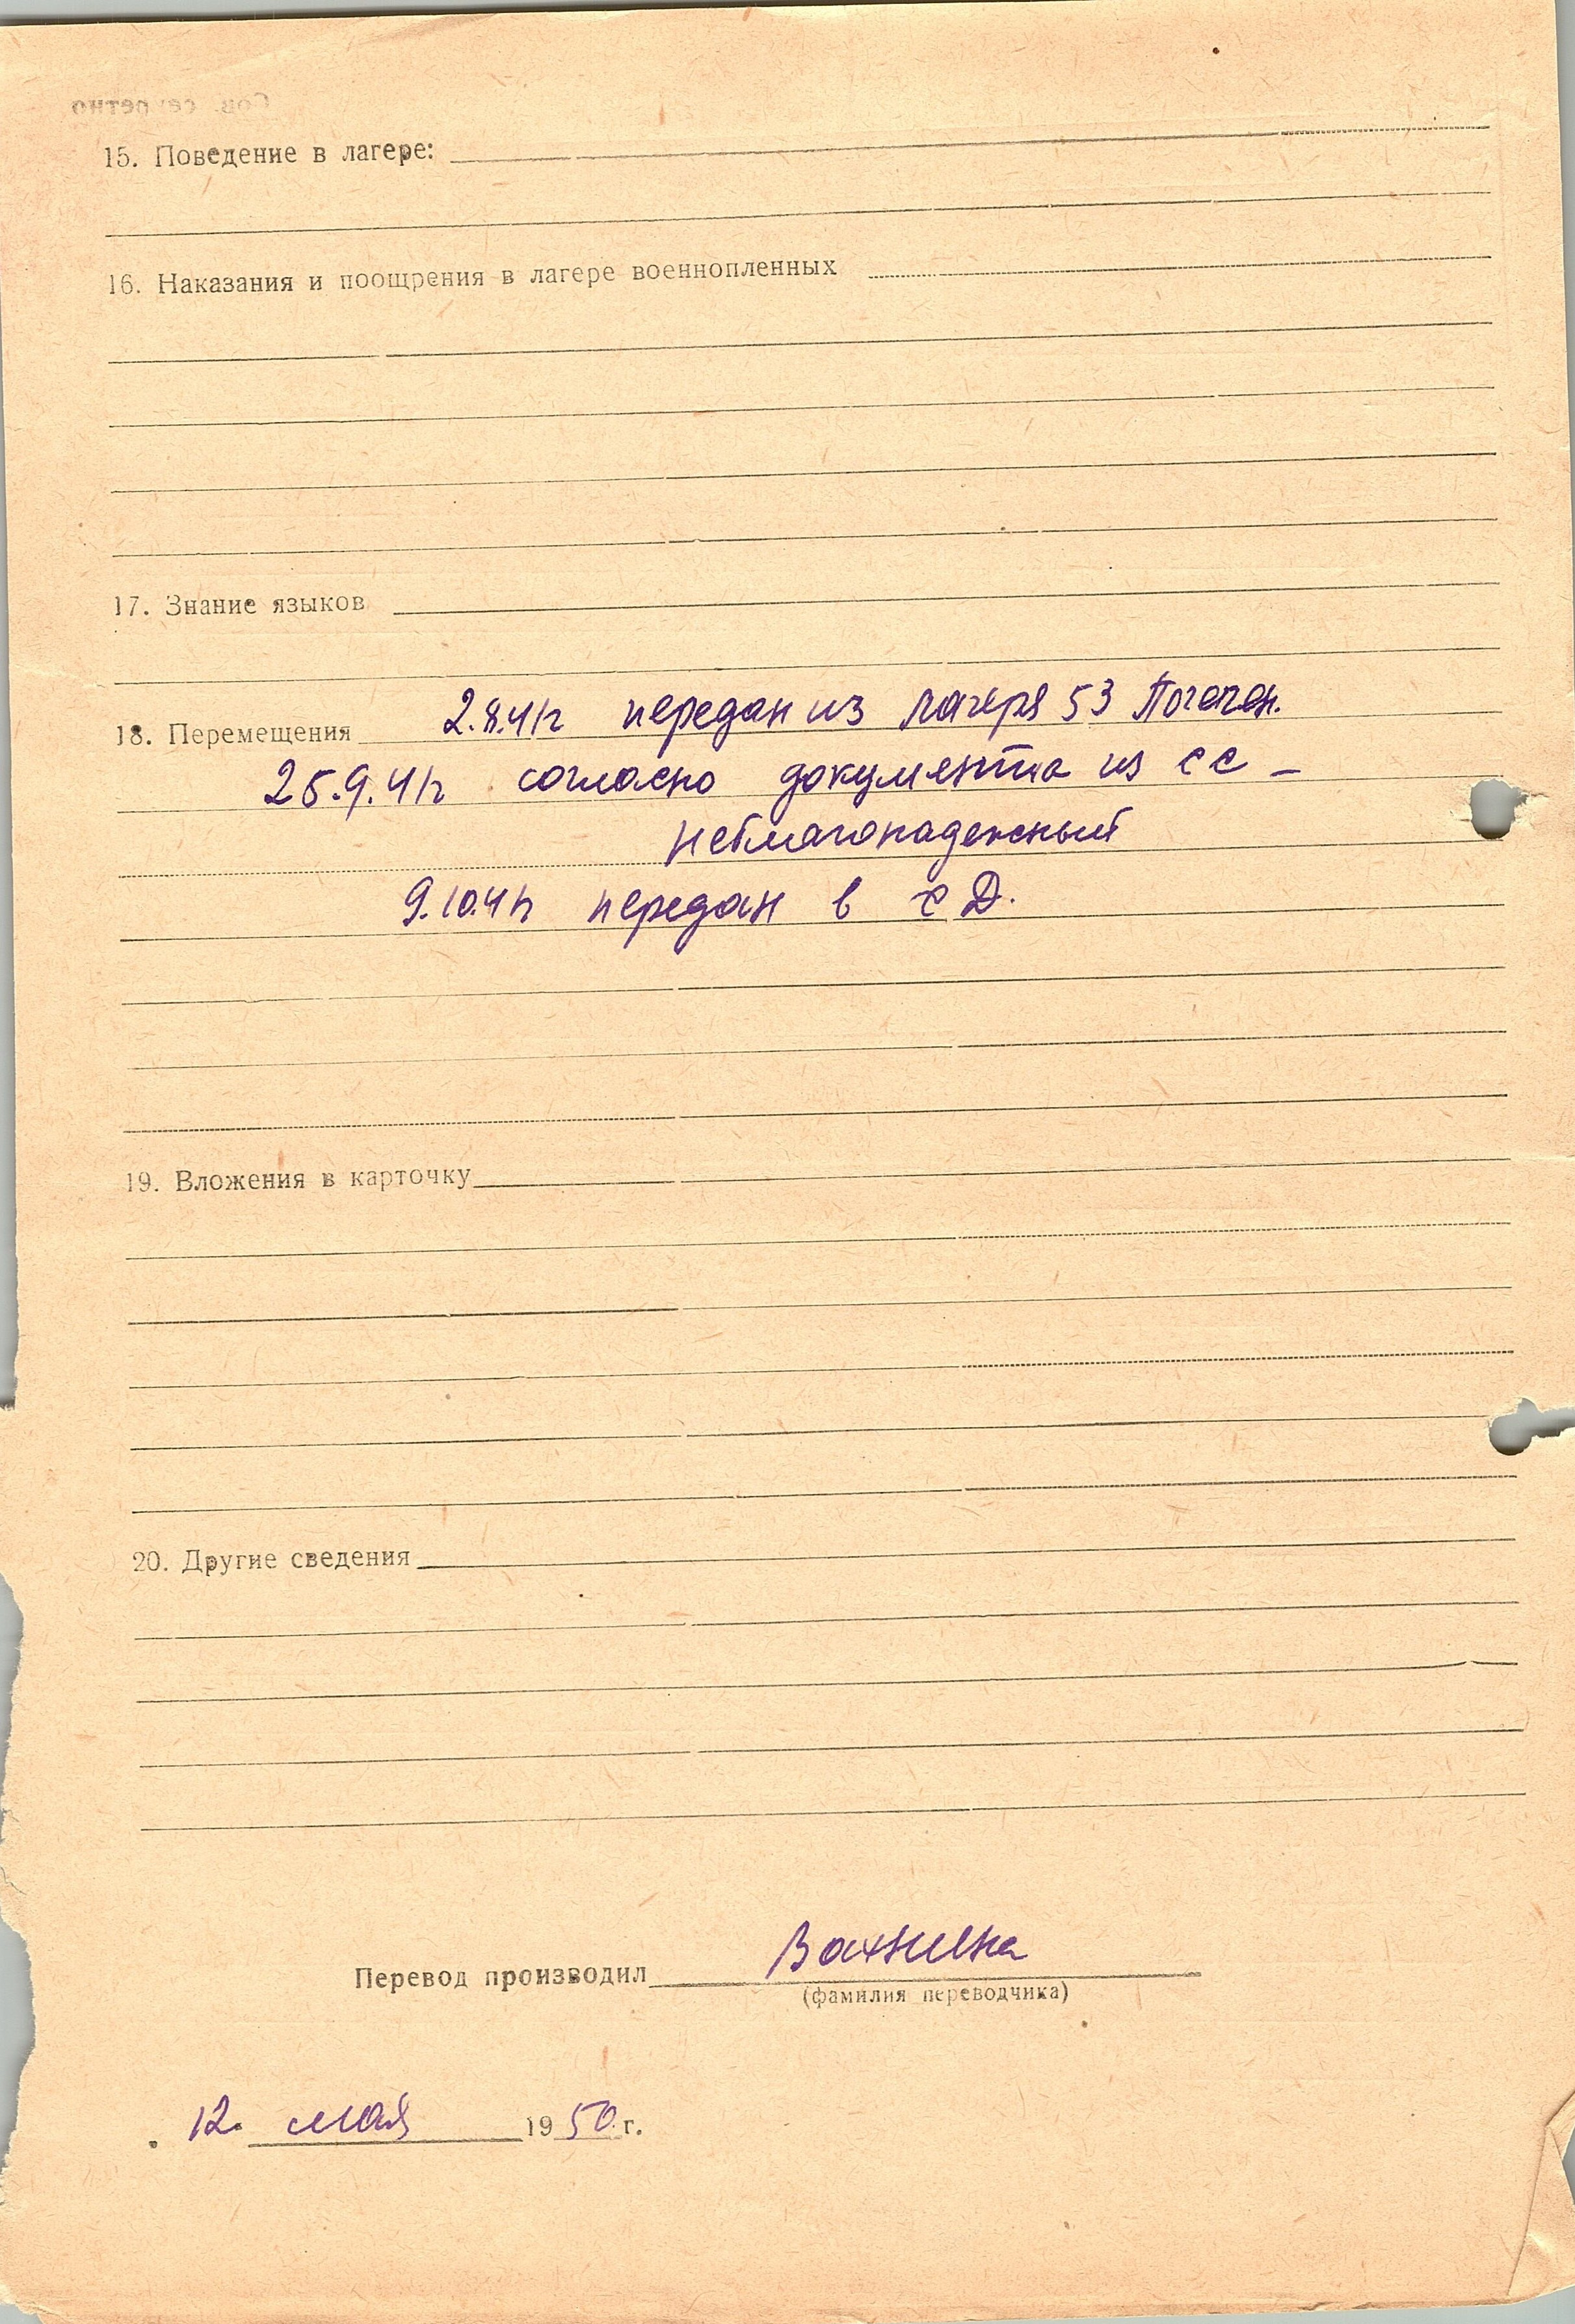 Сов. секретно
15. Поведение в лагере:
16. Наказания и поощрения в лагере военнопленных
17. Знание языков
18. Перемещения 2.8.41г передан из лагеря 53
25.9.41г согласно документа из СС –
неблагонадежный
9.10.41г передан в СД.
19. Вложения в карточку
20. Другие сведения
Перевод производил
(фамилия переводчика)
12. мая 1950 г.